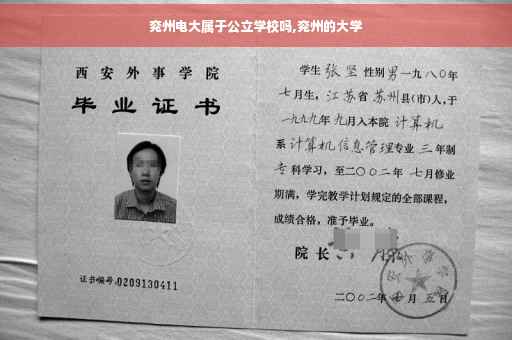 兖州电大属于公立学校吗,兖州的大学
西安外事学院
毕业证书
证书编号:0209130411
学生 张坚 性别 男 一九八〇年
七月生，江苏省 苏州县(市)人,于
一九九九年 九月入本院 计算机
系 计算机信息管理专业 三 年制
专科学习，至二〇〇二年 七月修业
期满，学完教学计划规定的全部课程，
成绩合格，准予毕业。
院长
二〇〇二年 月 五日